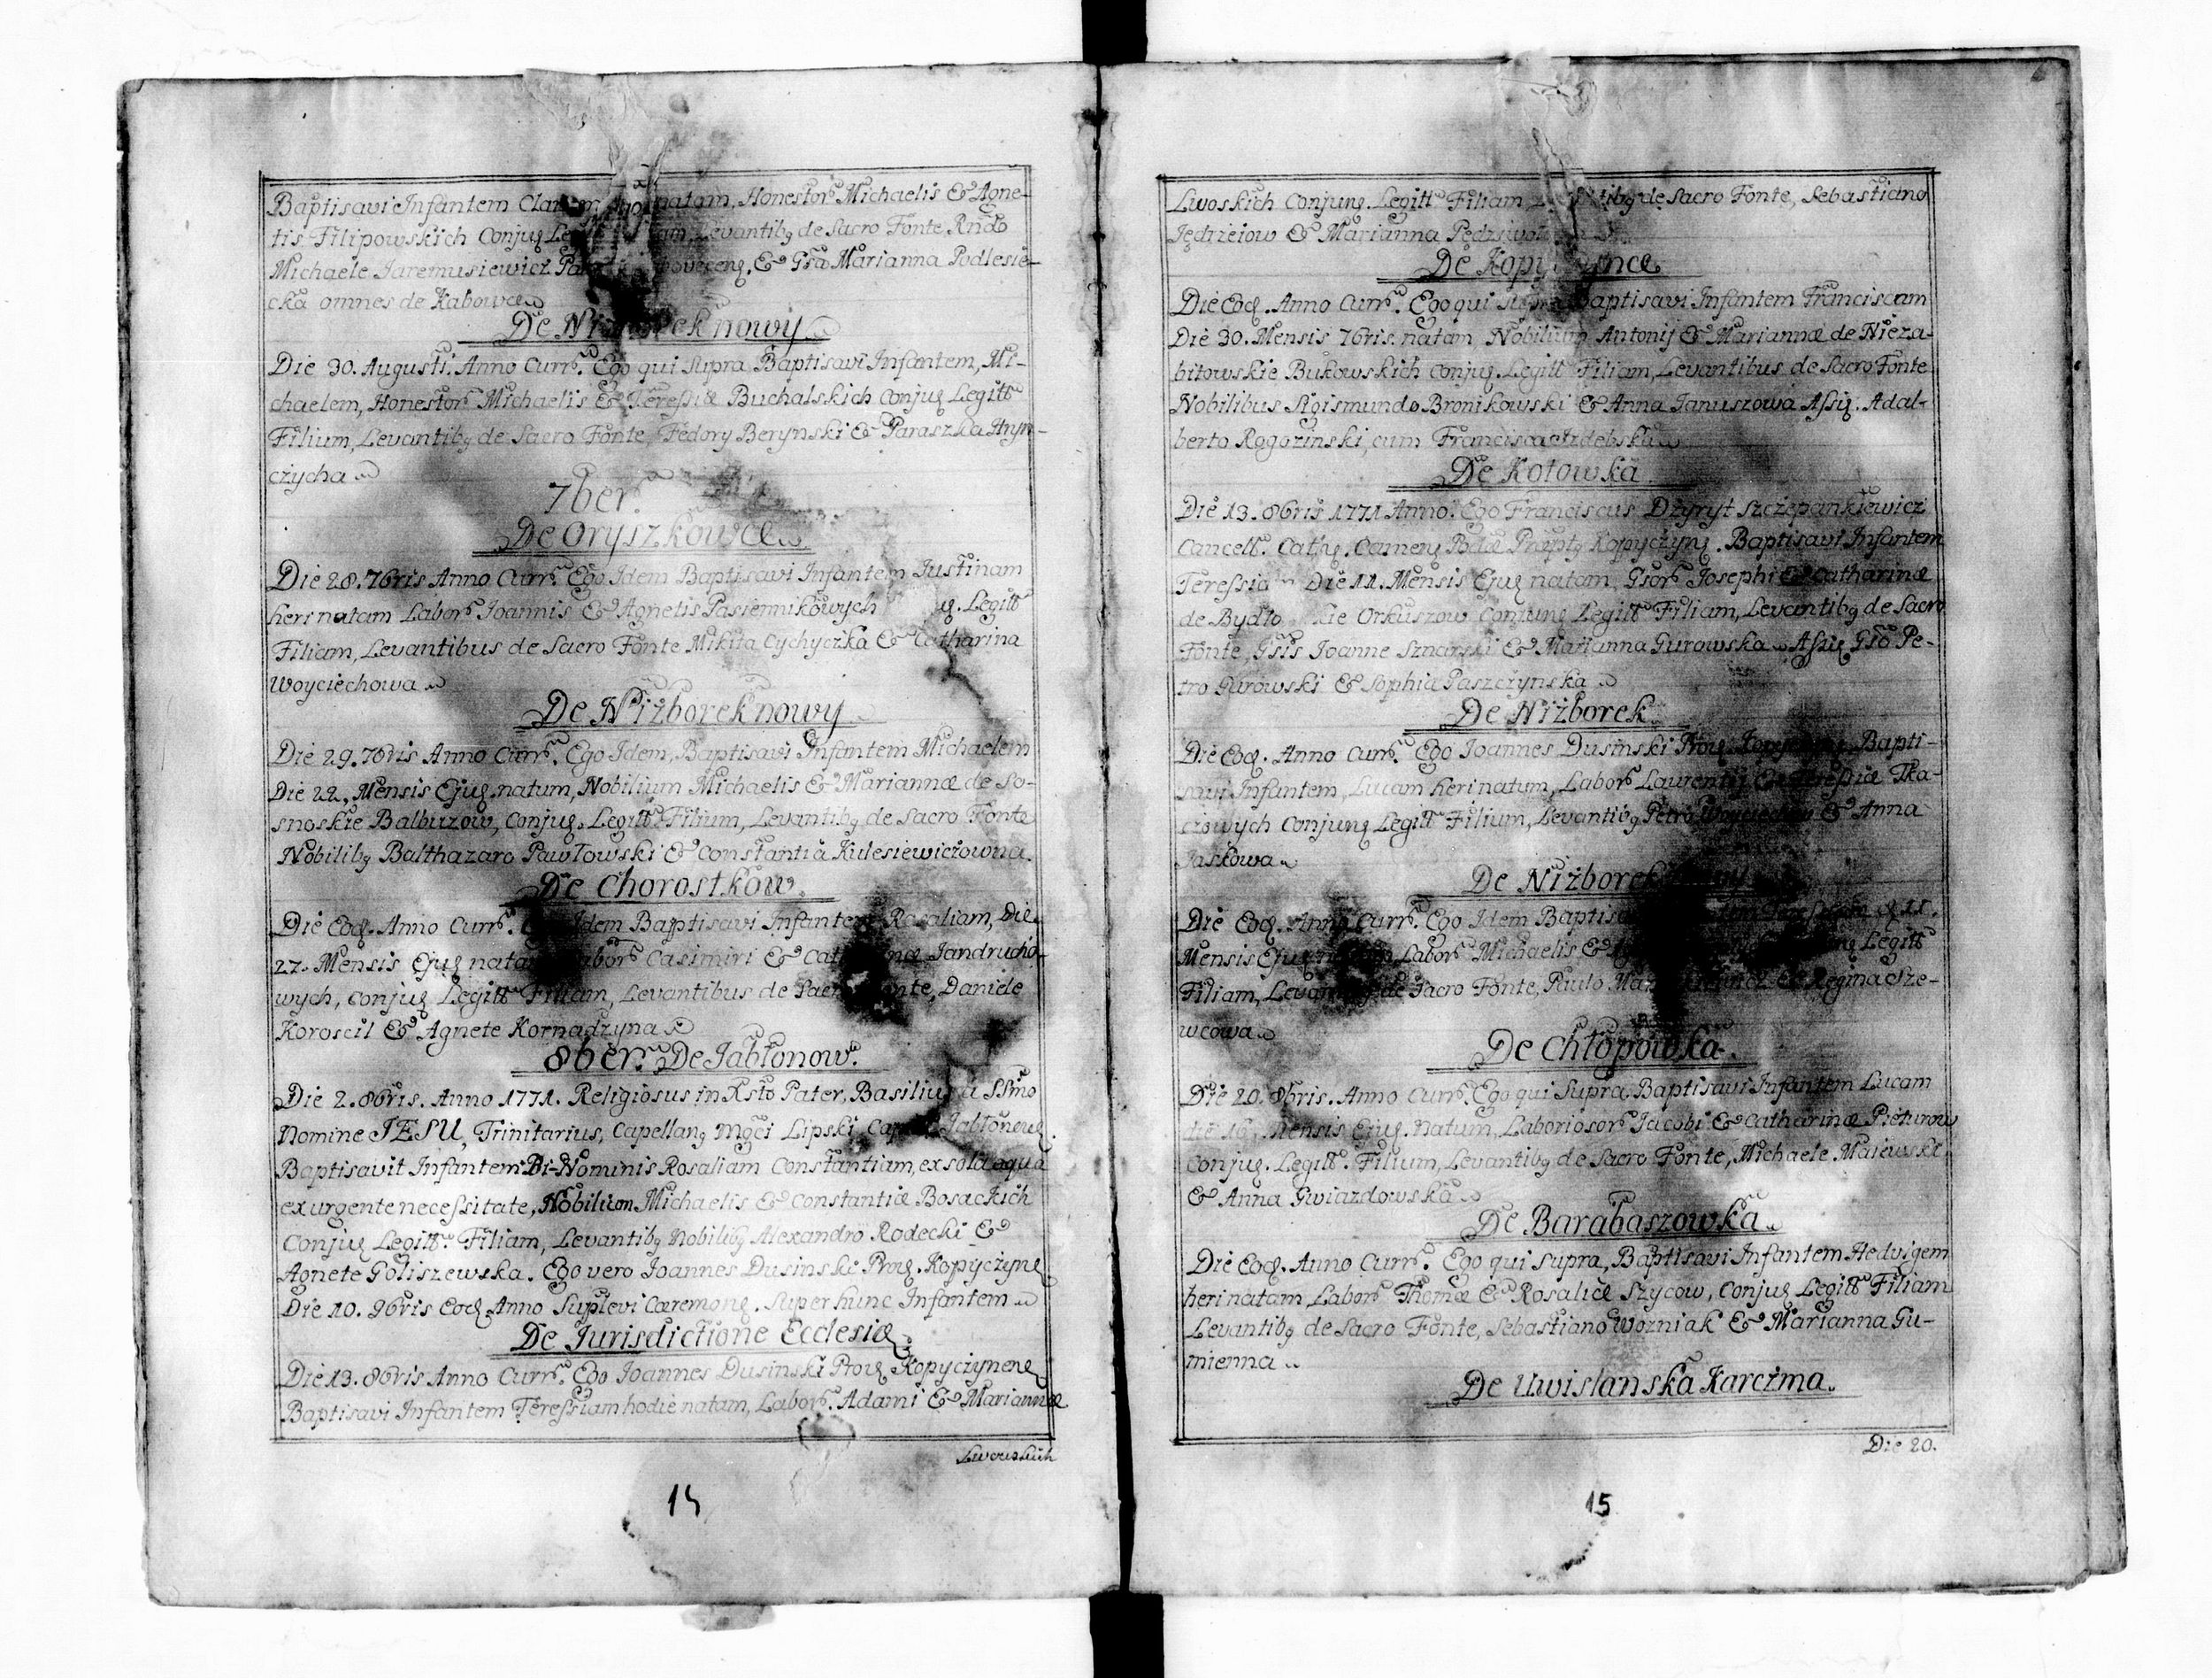 Baptisavi Infantem natam, Honestor Michaelis & Agne-
tis Filipowskich Conjug Levantibg de Sacro Fonte, Rndo
Michaele Jaremusiewicz & Gsa Marianna Podlesie-
cka omnes de Kabowce
De Niżborek nowy
Die 30. Augusti. Anno Curr. Ego qui Supra Baptisavi Infantem, Mi-
chaelem, Honestor Michaelis & Teressiæ Buchalskich Conjug Legitt
Filium, Levantibg de Sacro Fonte, Fedory Berynski & Paraszka Hryn-
czycha
7ber.
De Oryszkowce
Die 28. 7bris Anno Curr. Ego Idem Baptisavi Infantem Justinam
heri natam Labor Joannis & Agnetis Pasiennikowych Legitt
Filiam, Levantibus de Sacro Fonte Mikita Cychyczka & Catharina
Woyciechowa
De Niżborek nowy
Die 29. 7bris Anno Curr. Ego Idem, Baptisavi Infantem Michaelem
Die 22. Mensis Ejug natum, Nobilium Michaelis & Mariannæ de So-
snoskie Balbuzow, Conjug. Legitt Filium, Levantibg de Sacro Fonte
Nobilibg Balthazaro Pawłowski & Constantia Kulesiewiczowna.
De Chorostkow.
Die Eod. Anno Curr. Idem Baptisavi Infantem Rosaliam, Die
27. Mensis Ejug natam Labor Casimiri & Jandrucho-
wych, Conjug Legitt Filiam, Levantibus de Sacro Fonte, Daniele
Koroscil & Agnete Kornadzyna
8ber. De Jabłonow.
Die 2. 8bris. Anno 1771. Religiosus in Xsto Pater, Basilius a SSmo
Nomine JESU, Trinitarius, Capellang Mgci Lipski, Jabłonowg.
Baptisavit Infantem Bi-Nominis Rosaliam Constantiam, ex sola aqua
ex urgente necessitate, Nobilium Michaelis & Constantiæ Bosackich
Conjug Legitt. Filiam, Levantibg Nobilibg Alexandro Rodecki &
Agnete Goliszewska. Ego vero Joannes Dusinski Prog. Kopyczyng
Die 10. 9bris Eod. Anno Suplevi Cæremong. Super hunc Infantem
De Jurisdictione Ecclesiæ
Die 13. 8bris Anno Curr. Ego Joannes Dusinski Prog Kopyczyneng
Baptisavi Infantem Teressiam hodie natam, Labor. Adami & Mariannæ
14
Lwoskich Conjung. Legitt Filiam, de Sacro Fonte, Sebastiano
Jędrzeiow & Marianna
De Kopyczynce
Die Eod. Anno Curr. Ego qui Supra Baptisavi Infantem Franciscam
Die 30. Mensis 7bris. natam Nobilium Antonij & Mariannæ de Nieza-
bitowskie Bukowskich Conjug. Legitt Filiam, Levantibus de Sacro Fonte
Nobilibus Sigismundo Bronikowski & Anna Januszowa Assig. Adal-
berto Rogozinski, cum Francisca Izdebska
De Kotowka
Die 13. 8bris 1771 Anno. Ego Franciscus Dzyryt Szczepankiewicz
Cancell. Kopyczyng. Baptisavi Infantem
Teressiam Die 11. Mensis Ejug natam, Gsor Josephi & Catharinæ
de Orkuszow Conjung Legitt Filiam, Levantibg de Sacro
Fonte, Gsis Joanne Sznarski & Marianna Gurowska Assig Gso Pe-
tro Gurowski & Sophia Paszczynska
De Niżborek
Die Eod. Anno Curr. Ego Joannes Dusinski Prog. Bapti-
savi Infantem, Lucam heri natum, Labor Laurentij & Teressiæ Tka-
czowych Conjung Legitt Filium, Levantibg Petro & Anna
Jaskowa
De Niżborek
Die Eod. Anno Curr. Ego Idem 11.
Mensis Ejug Labor Michaelis & Legitt
Filiam, de Sacro Fonte, Paulo & Regina Sze-
wcowa
De Chłopowka.
Die 20. 8bris. Anno Curr. Ego qui Supra, Baptisavi Infantem Lucam
die 16. Mensis Ejug. natum, Laboriosor Jacobi & Catharinæ Pieturow
Conjug. Legitt. Filium, Levantibg de Sacro Fonte, Michaele Maiewski.
& Anna Gwiazdowska
De Barabaszowka
Die Eod. Anno Curr. Ego qui Supra, Baptisavi Infantem Hedvigem
heri natam Labor Thomæ & Rosaliæ Szycow, Conjug Legitt Filiam
Levantibg de Sacro Fonte, Sebastiano Wozniak & Marianna Gu-
mienna
De Uwislanska Karczma.
Die 20.
15